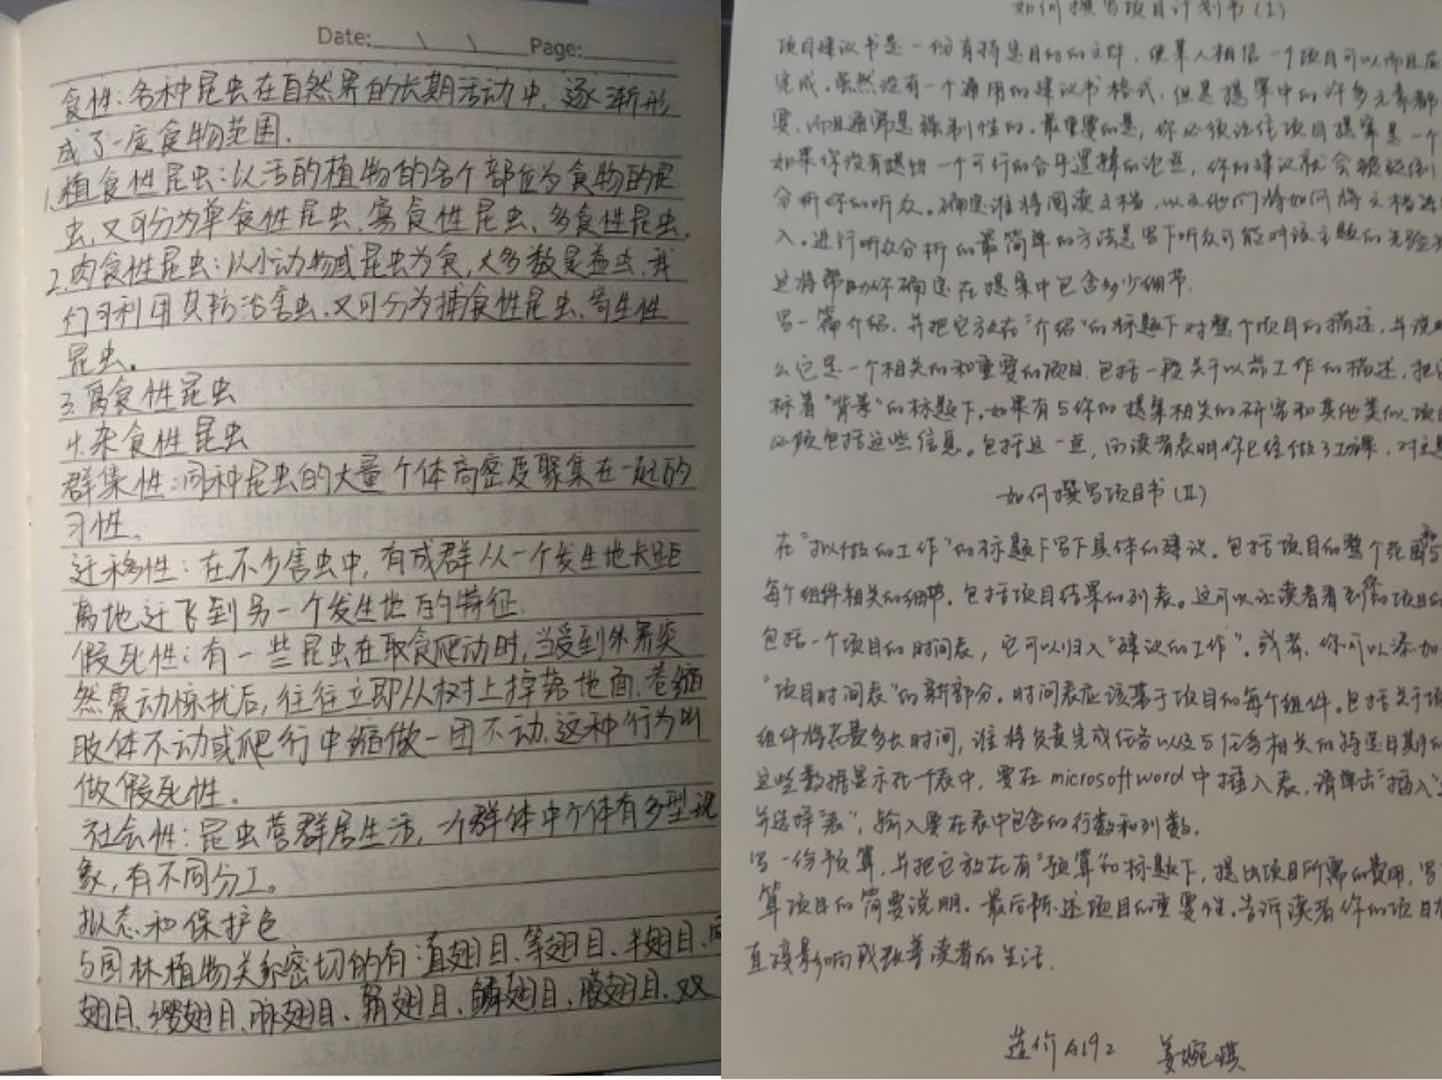 Date: \ \ Page:
食性:各种昆虫在自然界的长期活动中,逐渐形
成了一定食物范围.
1.植食性昆虫:以活的植物的各个部位为食物的昆
虫,又可分为单食性昆虫、寡食性昆虫、多食性昆虫.
2.肉食性昆虫:以小动物或昆虫为食,大多数是益虫,我
们可利用其防治害虫.又可分为捕食性昆虫、寄生性
昆虫。
3.腐食性昆虫
4.杂食性昆虫
群集性:同种昆虫的大量个体高密度聚集在一起的
习性.
迁移性:在不少害虫中,有成群从一个发生地长距
离地迁飞到另一个发生地的特征.
假死性:有一些昆虫在取食爬动时,当受到外界突
然震动惊扰后,往往立即从树上掉落地面、卷缩
肢体不动或爬行中缩做一团不动.这种行为叫
做假死性.
社会性:昆虫营群居生活,一个群体中个体有多型现
象,有不同分工。
拟态和保护色
与园林植物关系密切的有:直翅目、等翅目、半翅目、同
翅目、缨翅目、脉翅目、鞘翅目、鳞翅目、膜翅目、双
如何撰写项目计划书(I)
项目建议书是一份有特定目的的文件,使某人相信一个项目可以而且应
完成.虽然没有一个通用的建议书格式,但是提案中的许多元素都
要,而且通常是强制性的.最重要的是,你必须记住项目提案是一个
如果你没有提出一个可行的合乎逻辑的论点,你的建议就会被驳倒
分析你的听众.确定谁将阅读文档,以及他们将如何将文档
入.进行听众分析的最简单的方法是写下听众可能对该主题的先验
这将帮助你确定在提案中包含多少细节.
写一篇介绍.并把它放在"介绍"的标题下对整个项目的描述,并说
么它是一个相关的和重要的项目.包括一段关于以前工作的描述,把
标着"背景"的标题下.如果有与你的提案相关的研究和其他类似项目
必须包括这些信息。包括这一点,向读者表明你已经做了功课,对主题
如何撰写项目书(II)
在"拟做的工作"的标题下写下具体的建议.包括项目的整个范围与
每个组件相关的细节.包括项目结果的列表。这可以让读者看到你的项目
包括一个项目的时间表,它可以归入"建议的工作".或者,你可以添加
"项目时间表"的新部分.时间表应该基于项目的每个组件.包括关于
组件将花费多长时间,谁将负责完成任务以及与任务相关的特定日期
这些数据显示在一个表中,要在microsoft word中插入表,请单击"插入"
并选择"表",输入要在表中包含的行数和列数.
写一份预算,并把它放在有"预算"的标题下,提出项目所需的费用,写
算项目的简要说明.最后陈述项目的重要性.告诉读者你的项目
直接影响或改善读者的生活.
造价A192 姜婉琪